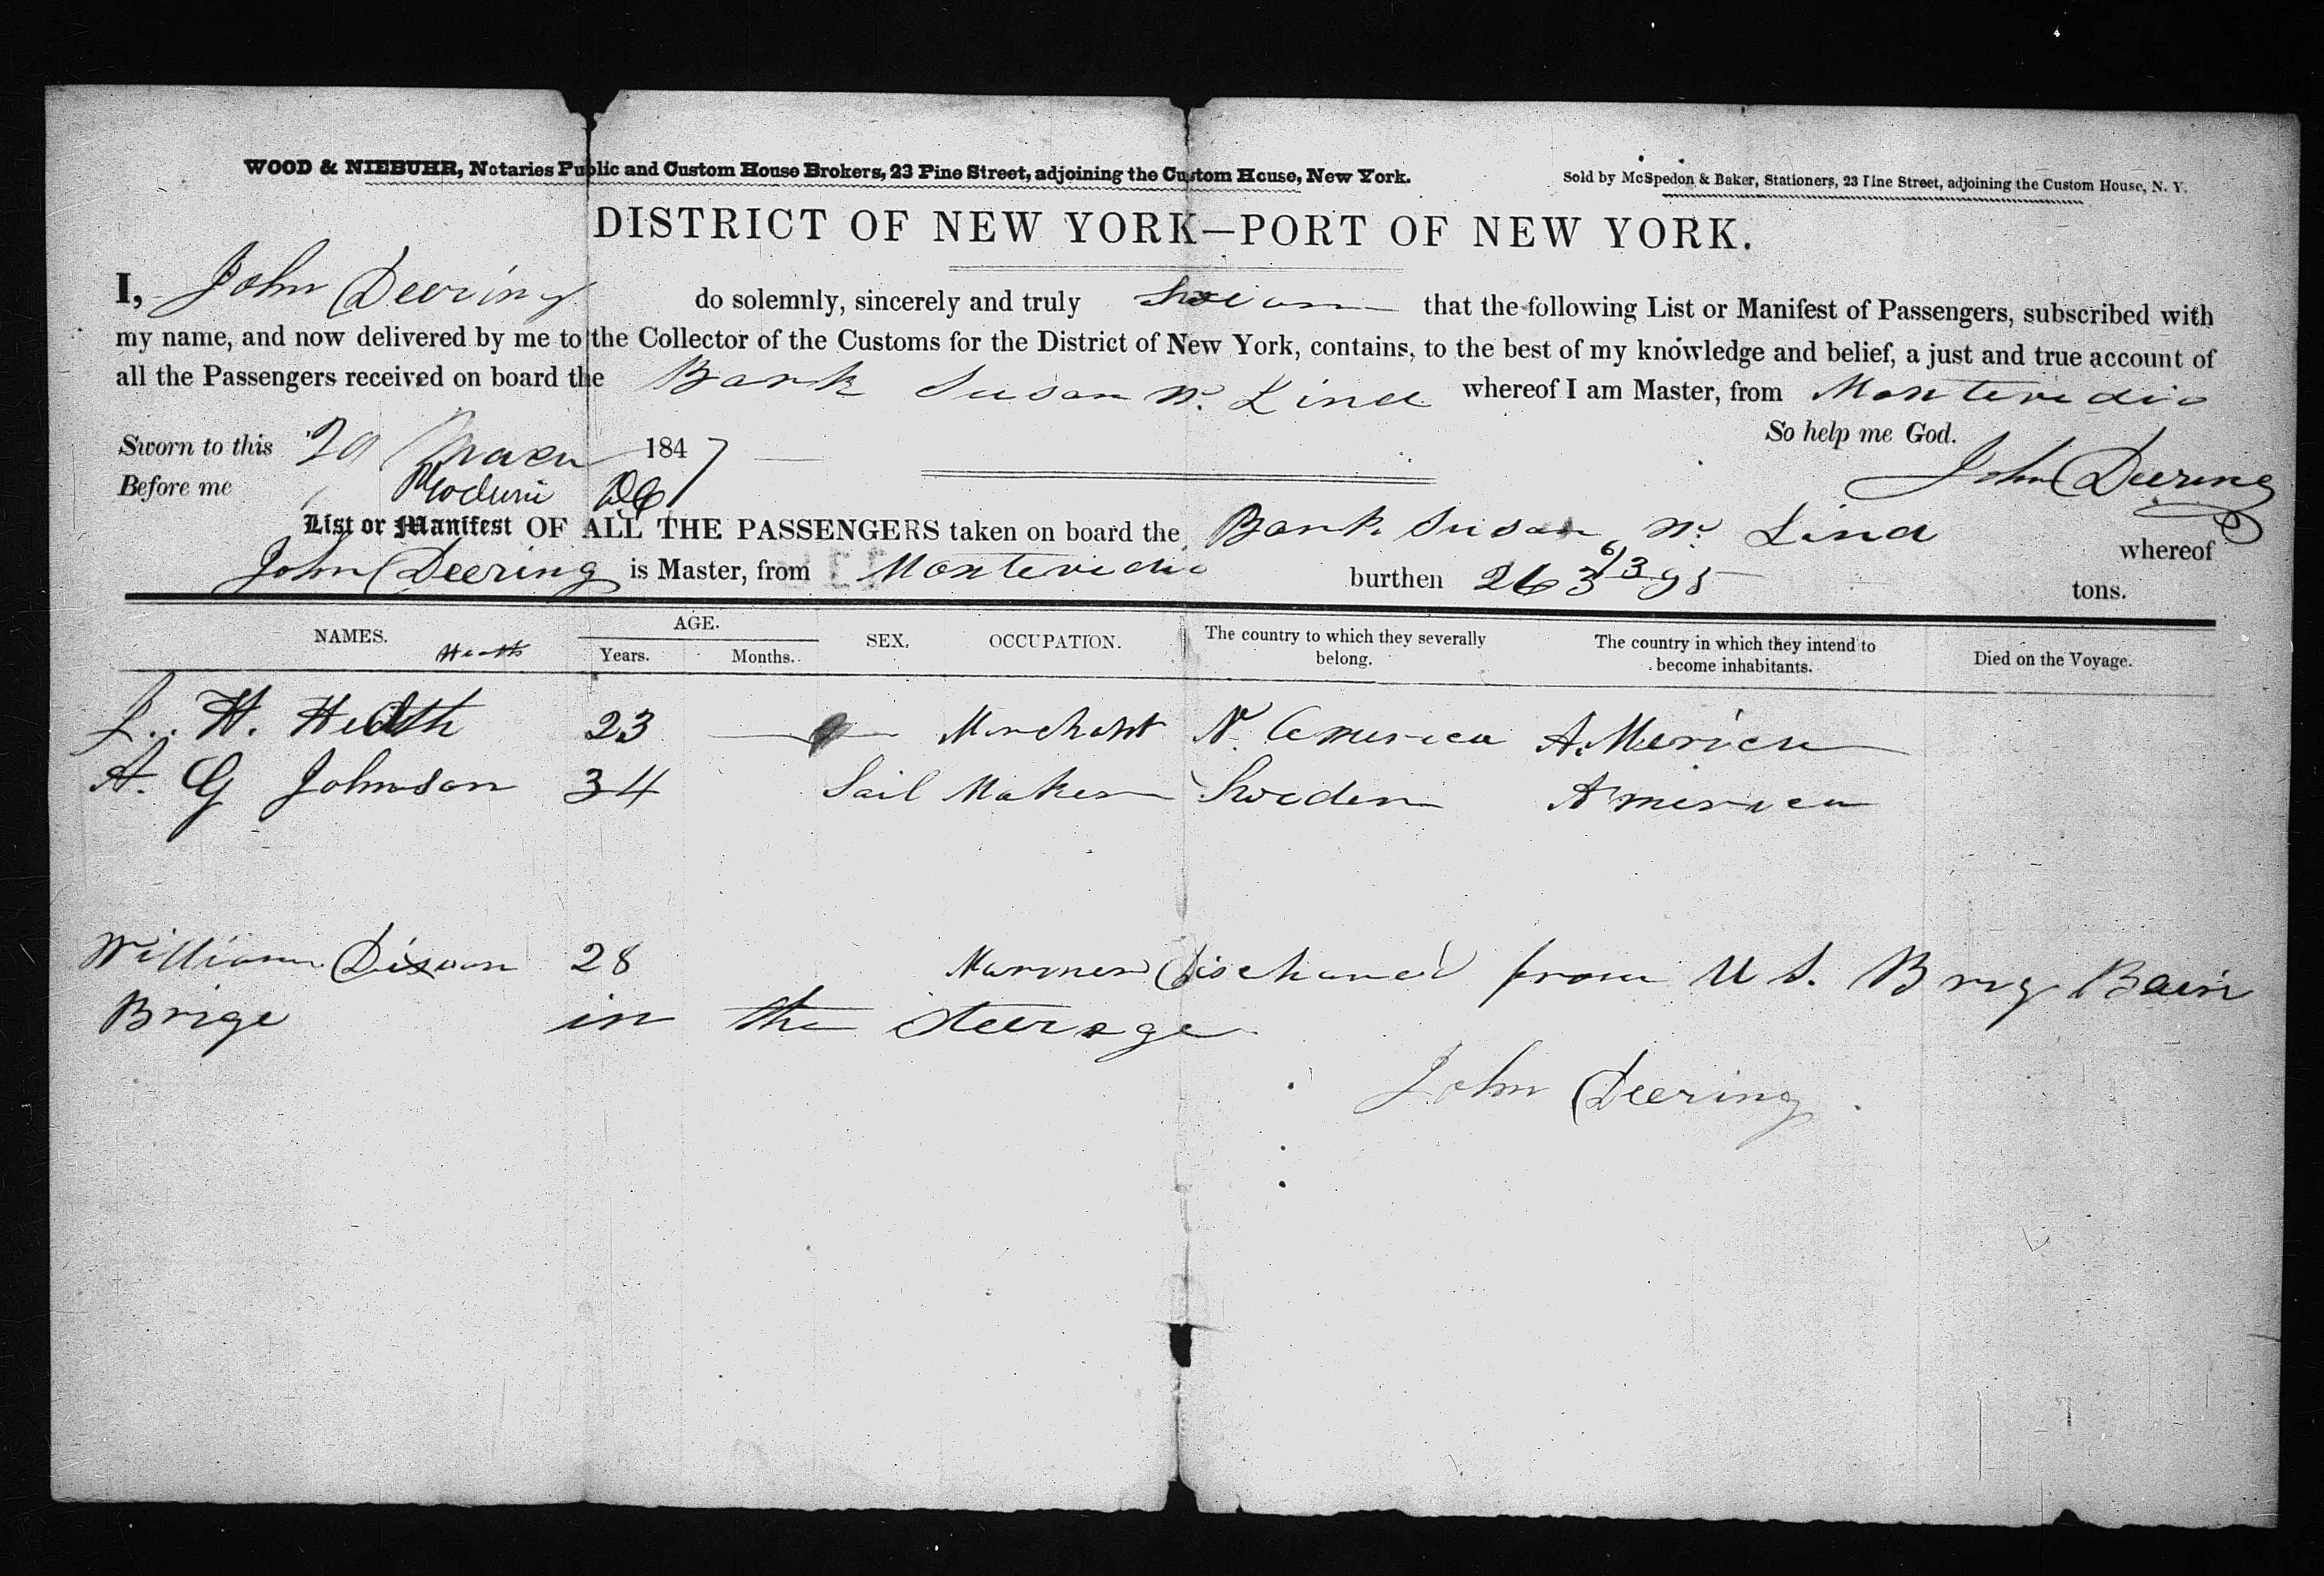 WOOD & NIEBUHR, Notaries Public and Custom House Brokers, 23 Pine Street, adjoining the Custom House, New York.
Sold by McSpedon & Baker, Stationers, 23 Pine Street, adjoining the Custom House, N. Y.
DISTRICT OF NEW YORK—PORT OF NEW YORK.
I, John Deering do solemnly, sincerely and truly that the following List or Manifest of Passengers, subscribed with
my name, and now delivered by me to the Collector of the Customs for the District of New York, contains, to the best of my knowledge and belief, a just and true account of
all the Passengers received on board the Bark Susan W. Lind whereof I am Master, from Montevidio
So help me God.
Sworn to this 20 1847
John Deering
Before me
List or Manifest OF ALL THE PASSENGERS taken on board the Bark Susan W. Lind whereof
John Deering is Master, from Montevidio burthen 263 tons.
NAMES. AGE. SEX. OCCUPATION. The country to which they severally belong. The country in which they intend to become inhabitants. Died on the Voyage.
Heath Years. Months.
J. H. Heath 23 Merchant N. America America
A. G Johnson 34 Sail Maker Sweden America
William Dixon 28 Mariner Dischared from U S. Brig Bain
Brige in the steerage
John Deering